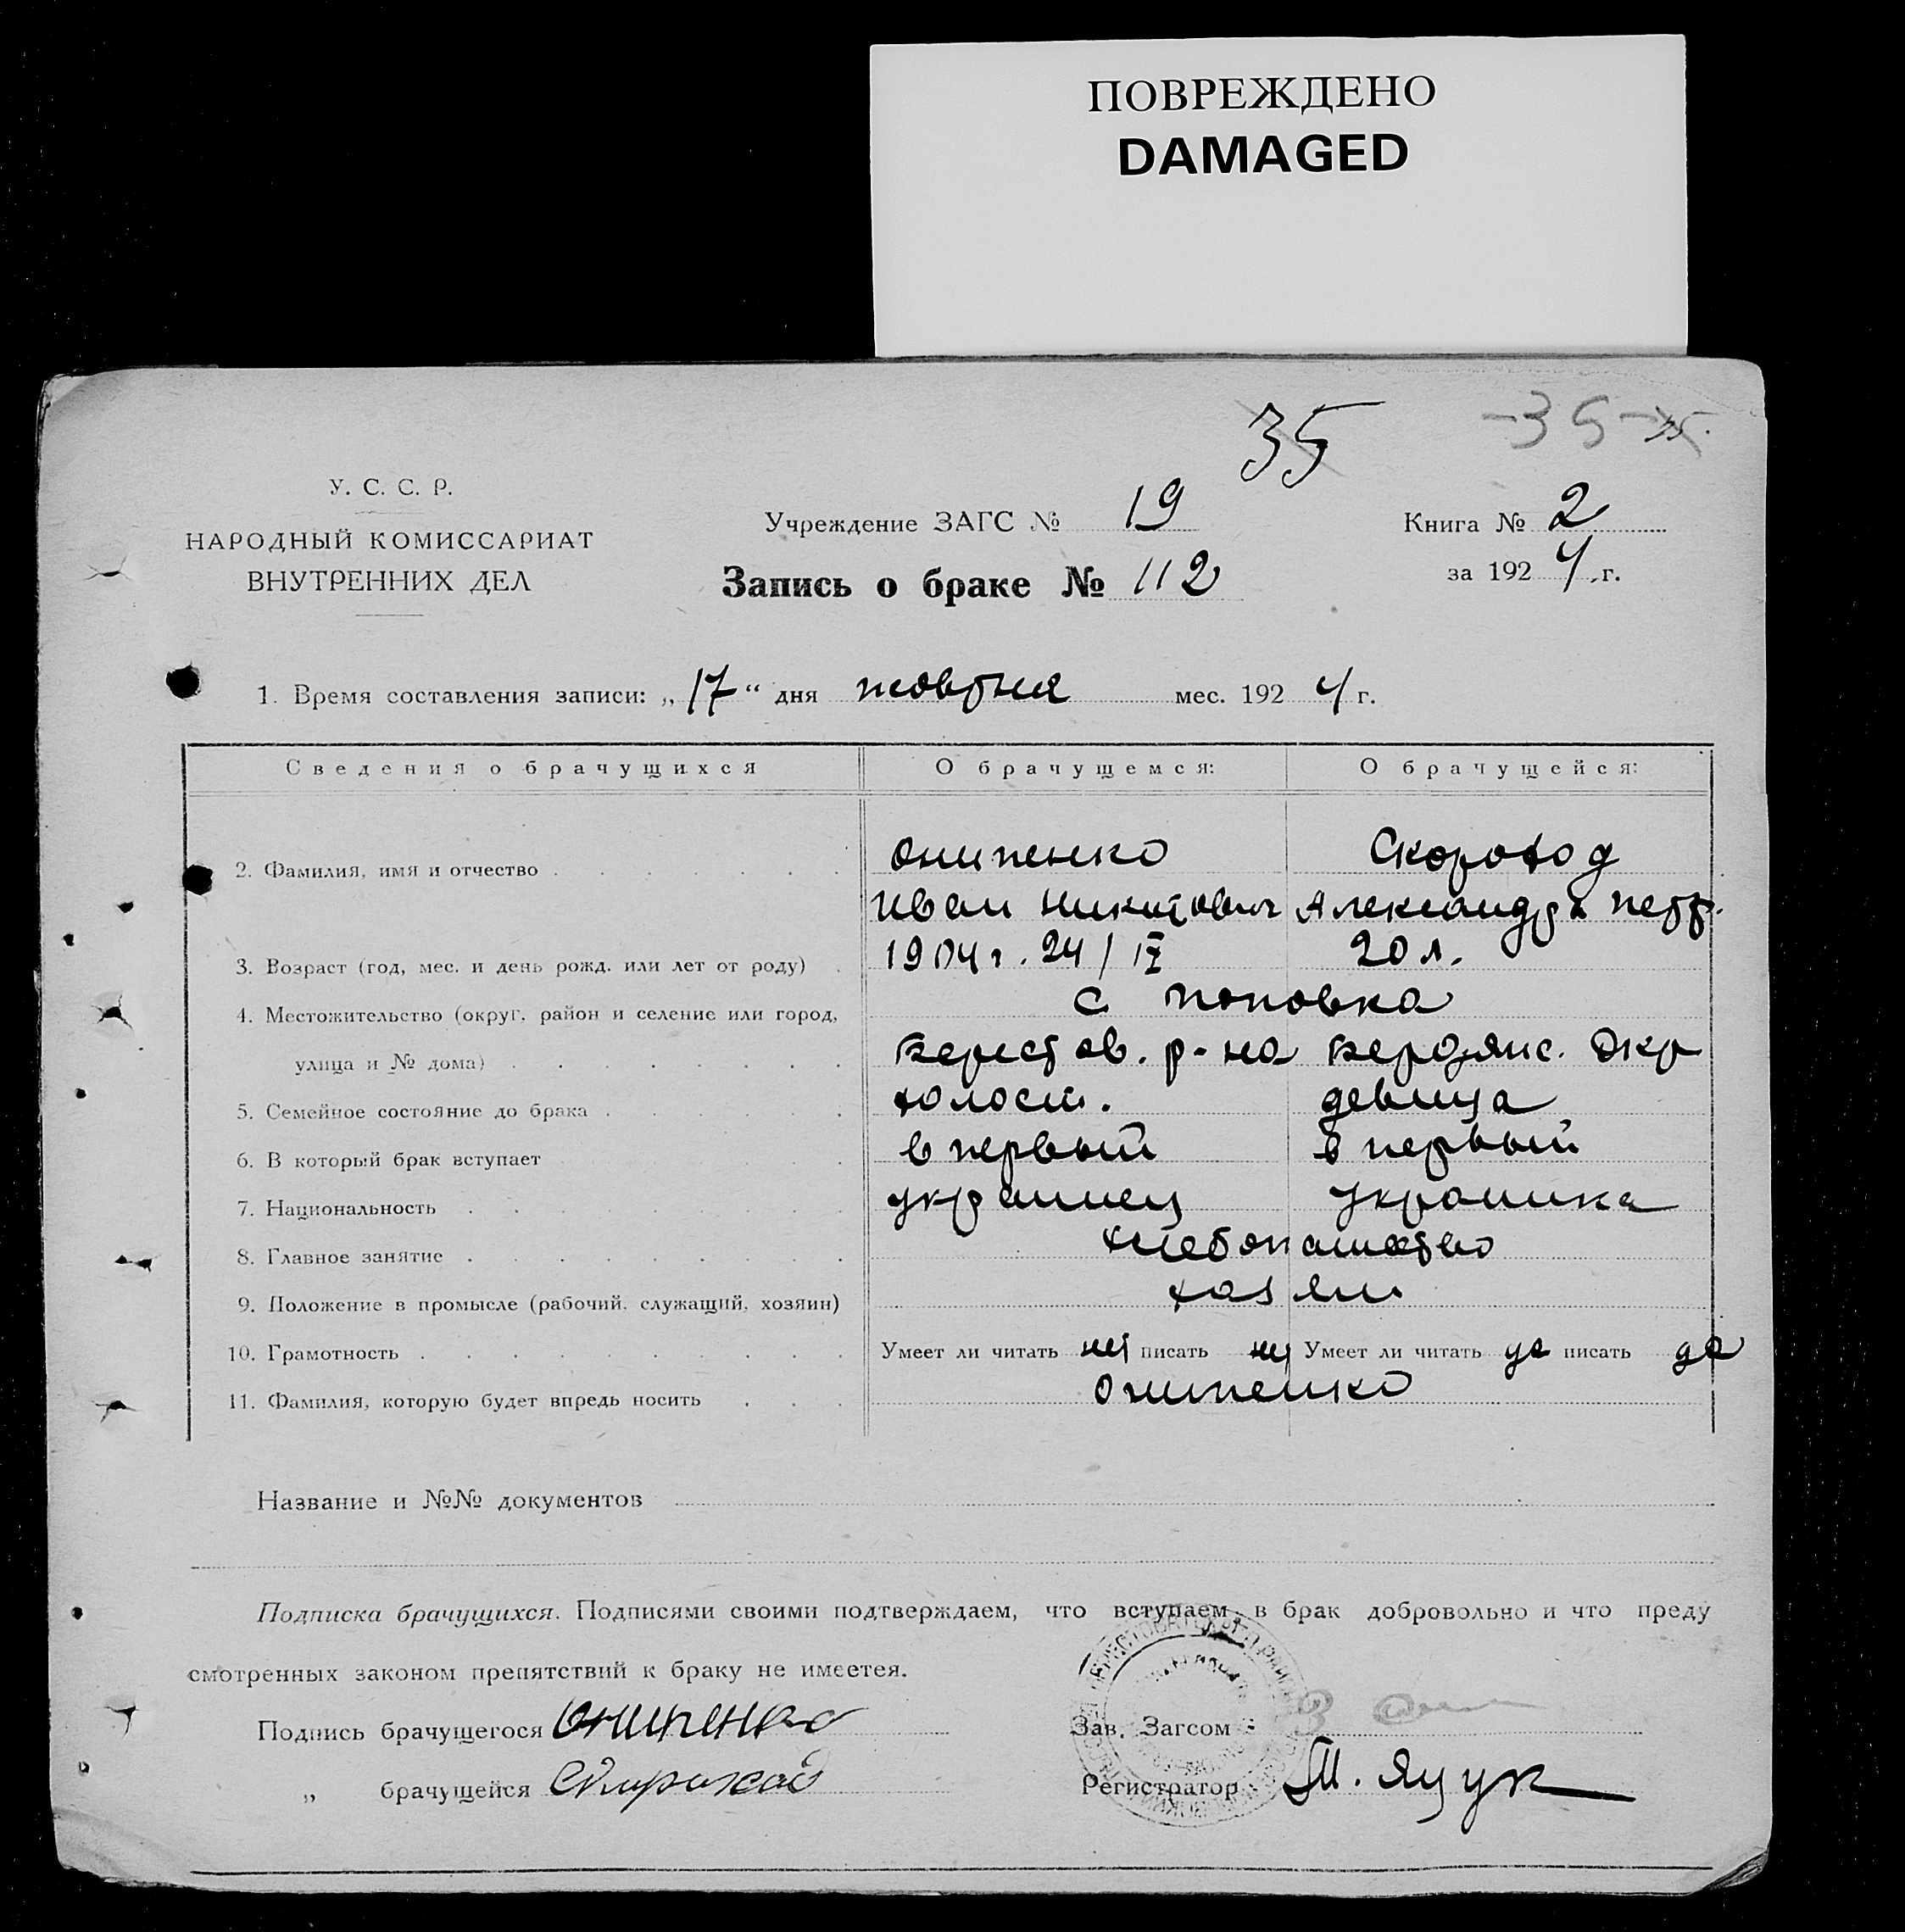 ПОВРЕЖДЕНО
DAMAGED
35 -35-
У. С. С. Р.
НАРОДНЫЙ КОМИССАРИАТ
ВНУТРЕННИХ ДЕЛ
Учреждение ЗАГС № 19
Запись о браке № 112
Книга № 2
за 1924 г.
1. Время составления записи: „17“ дня жовтня мес. 1924 г.
Сведения о брачущихся О брачущемся: О брачущейся:
2. Фамилия, имя и отчество Онипенко Скороход
Иван Никитович Александра Петр.
3. Возраст (год, мес. и день рожд. или лет от роду) 1904 г. 24/IX 20 л.
4. Местожительство (округ, район и селение или город, с Поповка
улица и № дома) Берестов. р-на Бердянс. Окр
5. Семейное состояние до брака холост. девица
6. В который брак вступает в первый в первый
7. Национальность украинец украинка
8. Главное занятие хлебопашество
9. Положение в промысле (рабочий, служащий, хозяин) хозяин
10. Грамотность Умеет ли читать нет писать нет Умеет ли читать да писать да
11. Фамилия, которую будет впредь носить Онипенко
Название и №№ документов
Подписка брачущихся. Подписями своими подтверждаем, что вступаем в брак добровольно и что преду
смотренных законом препятствий к браку не имеетея.
Подпись брачущегося Онипенко
Зав. Загсом
„ брачущейся
Регистратор Т. Яцук